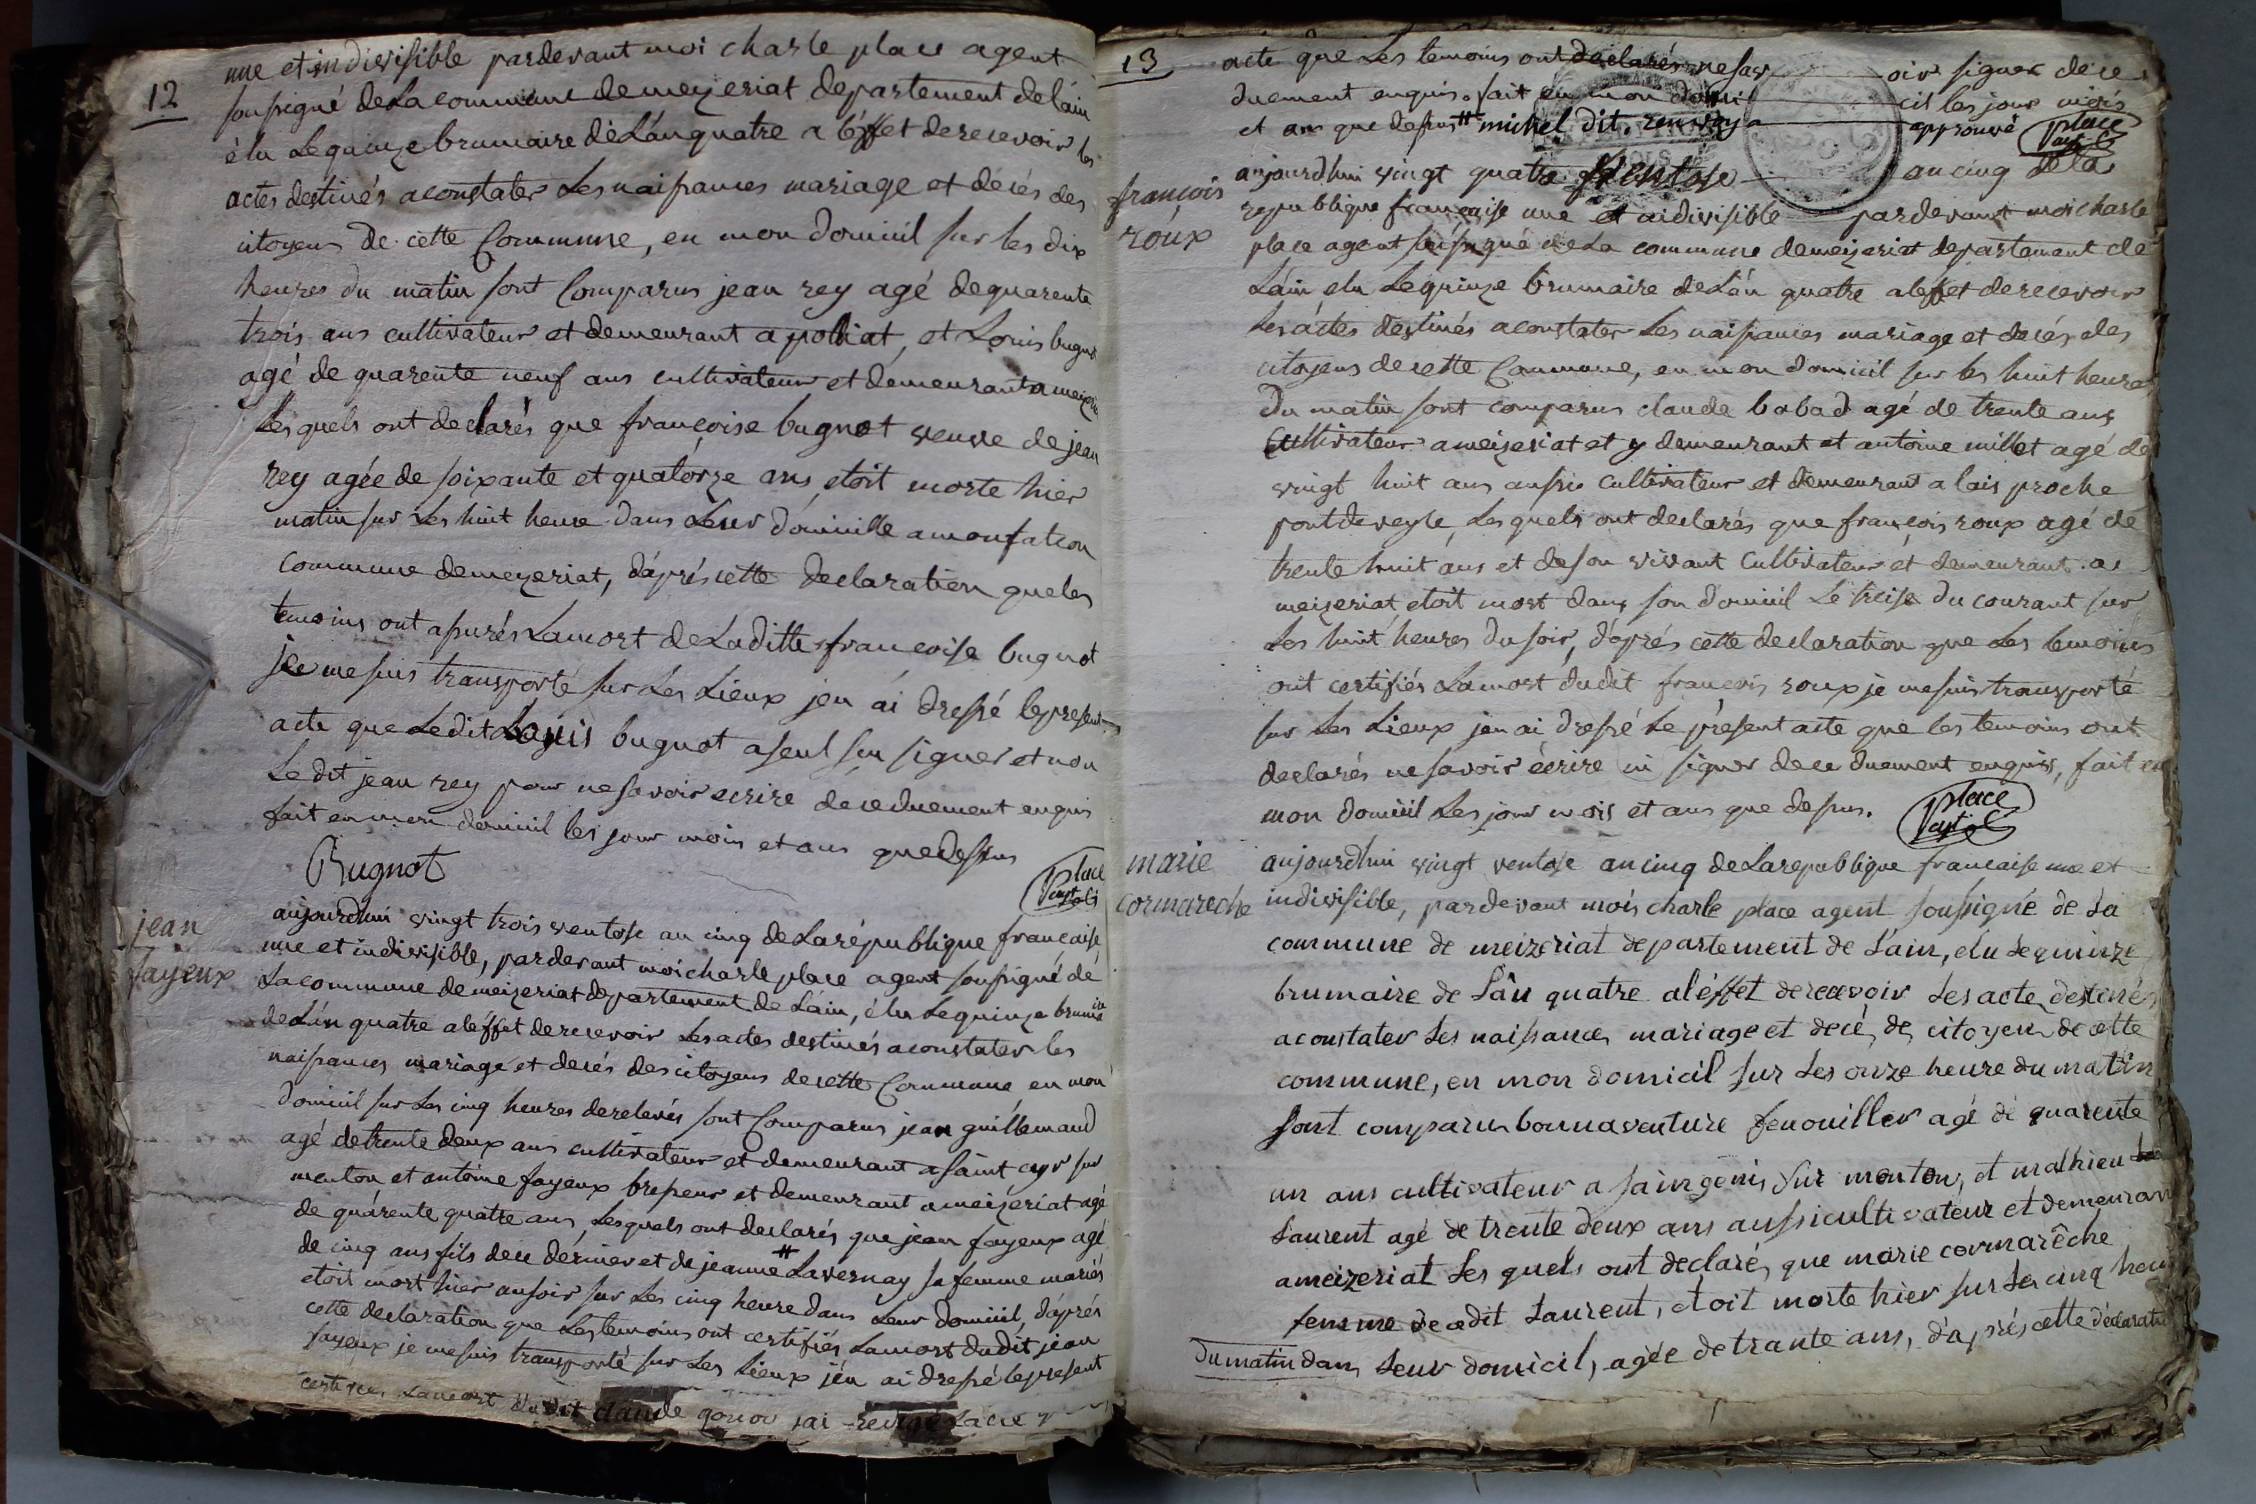 12
une et indivisible pardevant moi charle place agent
soussigné de La commune de meizeriat departement de láin
élu Le quinze brumaire de Lán quatre a léffet de recevoir les
actes destinés a constater Les naissances mariage et décés des
citoyens de cette Commune, en mon domicil sur les dix
heures du matin sont Comparus jean rey agé de quarente
trois ans cultivateur et demeurant a polliat, et Louis bugnot
agé de quarente neuf ans cultivateur et demeurant a meizeriat
Lesquels ont declarés que françoise bugnot veuve de jean
rey agée de soixante et quatorze ans etoit morte hier
matin sur Les huit heure dans Leur domicille a monfalcon
commune de mezeriat, dáprés cette declaration que les
temoins ont assurés La mort de La ditte françoise bugnot
je me suis transporté sur Les Lieux jen ái dressé le present
acte que Le dit Louis bugnot a seul su signer et non
Le dit jean rey pour ne savoir ecrire de ce duement enquis
fait en mon domicil les jour mois et ans que dessus
Bugnot
place
agent
jean
fayeux
aujourdhui vingt trois ventose an cinq de La république française
une et indivisible, pardevant moi charle place agent soussigné de
La commune de meizeriat departement de Láin, élu Le quinze brumaire
de Lán quatre a léffet de recevoir Les actes destinés a constater les
naissances mariage et decés des citoyens de cette Commune en mon
domicil sur Les cinq heures de relevés sont Comparus jean guillemaud
agé de trente deux ans cultivateur et demeurant a saint cyr sur
menton et antoine fayeux bresseur et demeurant a meizeriat agé
de quárente quatre ans, Lesquels ont declarés que jean fayeux agé
de cinq ans fils de ce dernier et de jeanne # Lavernay sa femme mariés
etoit mort hier au soir sur Les cinq heure dans Leur domicil, dáprés
cette declaration que Les temoins ont certifiés La mort du dit jean
fayeux je me suis transporté sur Les Lieux jén ai dressé le present
La mort du dit claude gonod jai redigé Lacte
13
acte que Les temoins ont declarés ne savoir signer de ce
duement enquis. fait en mon domicil les jour mois
et ans que dessus # michel dit. renvoy approuvé
place
agent
françois
roux
aujourdhui vingt quatre ventose an cinq de la
republique française une et indivisible pardevant moi charle
place agent soussigné de La commune de meizeriat departement de
Láin elu Le quinze brumaire de Lán quatre a leffet de recevoir
Les áctes destinés a constater Les naissances mariage et decés des
citoyens de cette Commune, en mon domicil sur les huit heures
du matin sont comparus claude babad agé de trente ans
Cultivateur a meizeriat et y demeurant et antoine millet agé de
vingt huit ans aussi cultivateur et demeurant a lais proche
pontdeveyle, Lesquels ont declarés que françois roux agé de
trente huit ans et de son vivant Cultivateur et demeurant a
meizeriat etoit mort dans son domicil Le treise du courant sur
Les huit heures du soir, dáprés cette declaration que Les temoins
ont certifiés La mort du dit françois roux je me suis transporté
sur Les Lieux jen ai dressé Le present acte que les temoins ont
declarés ne savoir écrire ni signer de ce duement enquis, fait en
mon domicil Les jour mois et ans que dessus.
place
agent
marie
cormareche
aujourdhui vingt ventose an cinq de La republique francaise une et
indivisible, pardevant mois charle place agent soussigné de La
commune de meizeriat departement de Lain, elu Le quinze
brumaire de Lân quatre a léffet de recevoir Les acte destinés
a constater Les naissances mariage et decé, des citoyens de cette
commune, en mon domicil sur Les onze heure du matin
sont comparus bonnaventure fenouiller agé de quarente
un ans cultivateur a saingenis sur menton, et mathieu
Laurent agé de trente deux ans aussi cultivateur et demeurant
a meizeriat Les quels ont declarés que marie cormarêche
femme de cedit Laurent, etoit morte hier sur Les cinq heure
du matin dans Leur domicil, agée de trante ans, dáprés cette déclaration